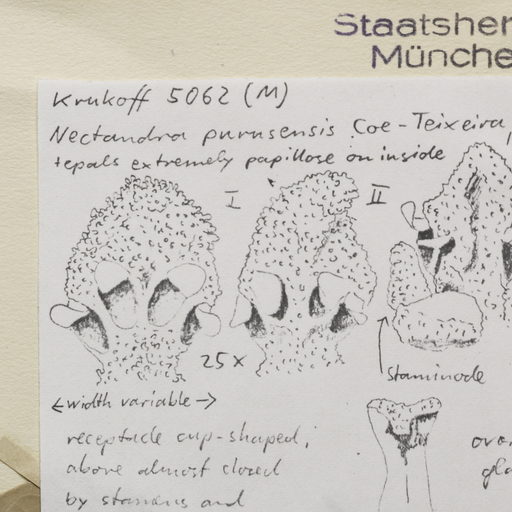 Staatsher
Münche
Krukoff 5062 (M)
Nectandra purusensis Coe-Teixeira,
tepals extremely papillose on inside
I
II
25x
staminode
←width variable→
receptacle cup-shaped,
above almost closed
by stamens and
ova
gla